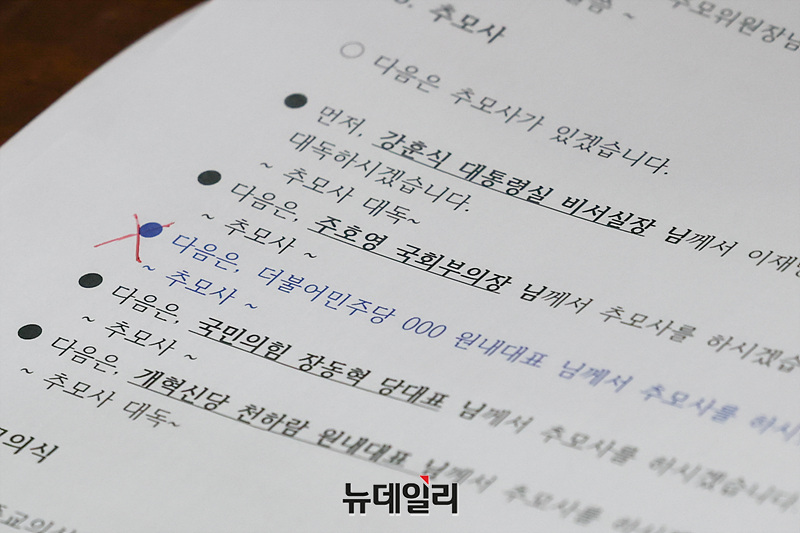 추모위원장님
말씀 ~
추모사
○ 다음은 추모사가 있겠습니다.
● 먼저, 강훈식 대통령실 비서실장 님께서 이재명
대독하시겠습니다.
~ 추모사 대독~
● 다음은, 주호영 국회부의장 님께서 추모사를 하시겠습
~ 추모사 ~
● 다음은, 더불어민주당 000 원내대표 님께서 추모사를 하시
~ 추모사 ~
● 다음은, 국민의힘 장동혁 당대표 님께서 추모사를 하시겠습니다.
~ 추모사 ~
● 다음은, 개혁신당 천하람 원내대표 님께서 추모사를 하시겠습
~ 추모사 대독~
의식
종교의식
뉴데일리